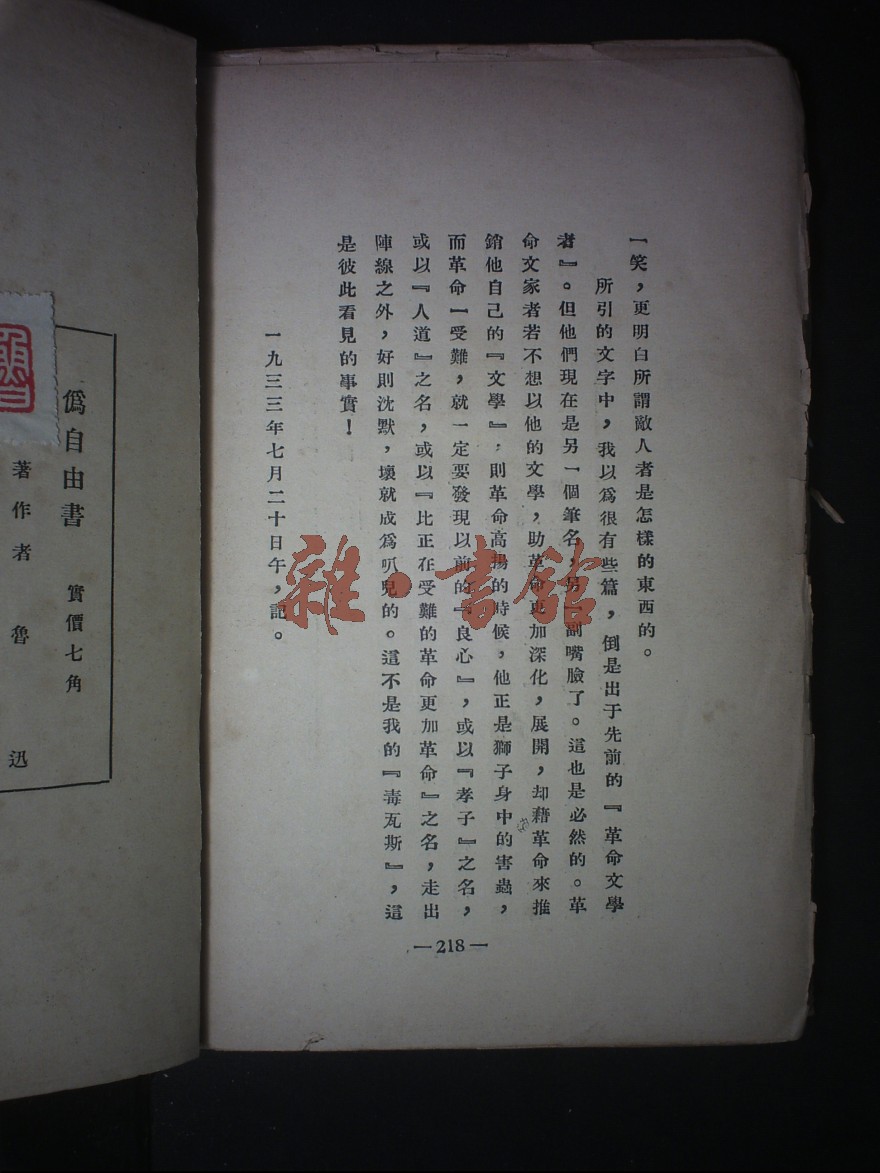 一笑，更明白所謂敵人者是怎樣的東西的。
所引的文字中，我以爲很有些篇，倒是出于先前的『革命文學
者』。但他們現在是另一個筆名，另一副嘴臉了。這也是必然的。革
命文家者若不想以他的文學，助革命更加深化，展開，却藉革命來推
銷他自己的『文學』，則革命高揚的時候，他正是獅子身中的害蟲，
而革命一受難，就一定要發現以前的『良心』，或以『孝子』之名，
或以『人道』之名，或以『比正在受難的革命更加革命』之名，走出
陣線之外，好則沈默，壞就成爲叭兒的。這不是我的『毒瓦斯』，這
是彼此看見的事實！
一九三三年七月二十日午，記。
—218—
僞自由書 實價七角
著作者 魯迅
雜·書館